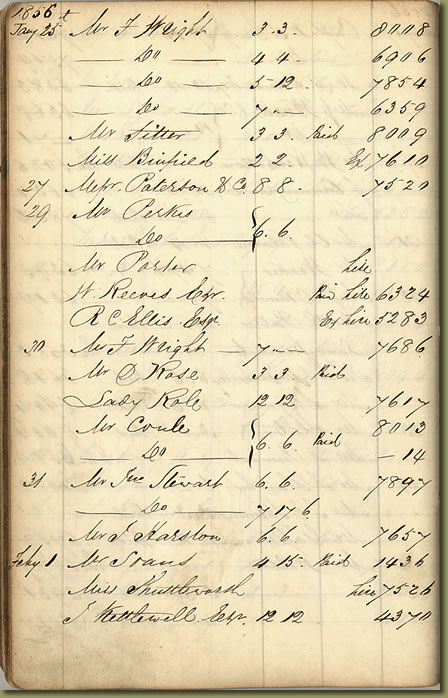 1856
Jany 25th Mr F Wright 3 3. 8008
Do 4 4. 6906
Do 5 12. 7854
Do 7 - - 6359
Mr 3 3. Paid 8009
Miss Binfield 2 2. Ex 7610
27 Messrs. Paterson & Co. 8 8. 7520
29 Mr Perkis
Do 6. 6.
Mr Porter hire
W. Reeves Esqr. Pd hire 6324
R C Ellis Esqr Ex hire 5283
30 Mr F Wright 7 - - 7686
Mr O Rose 3 3. Paid
Lady Role 12 12 7617
Mr Coule 8013
Do 6. 6. Paid - 14
31 Mr Jno Stewart 6. 6. 7897
Do 7 17 6
Mr J Harston 6. 6. 7657
Feby 1 Mr 4 15. Paid 1436
Miss Shuttleworth hire 7526
J Kettlewell Esqr. 12 12 4370